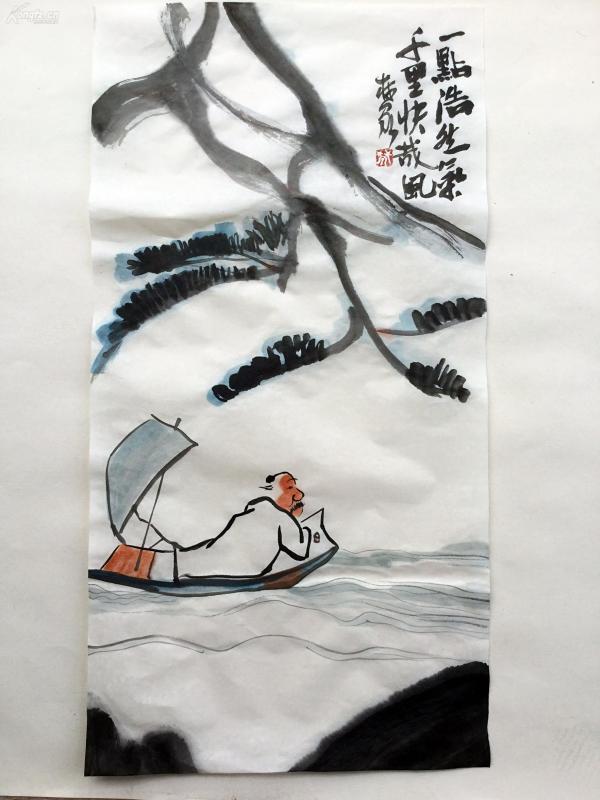 一點浩然氣
千里快哉風
Kongfz.cn